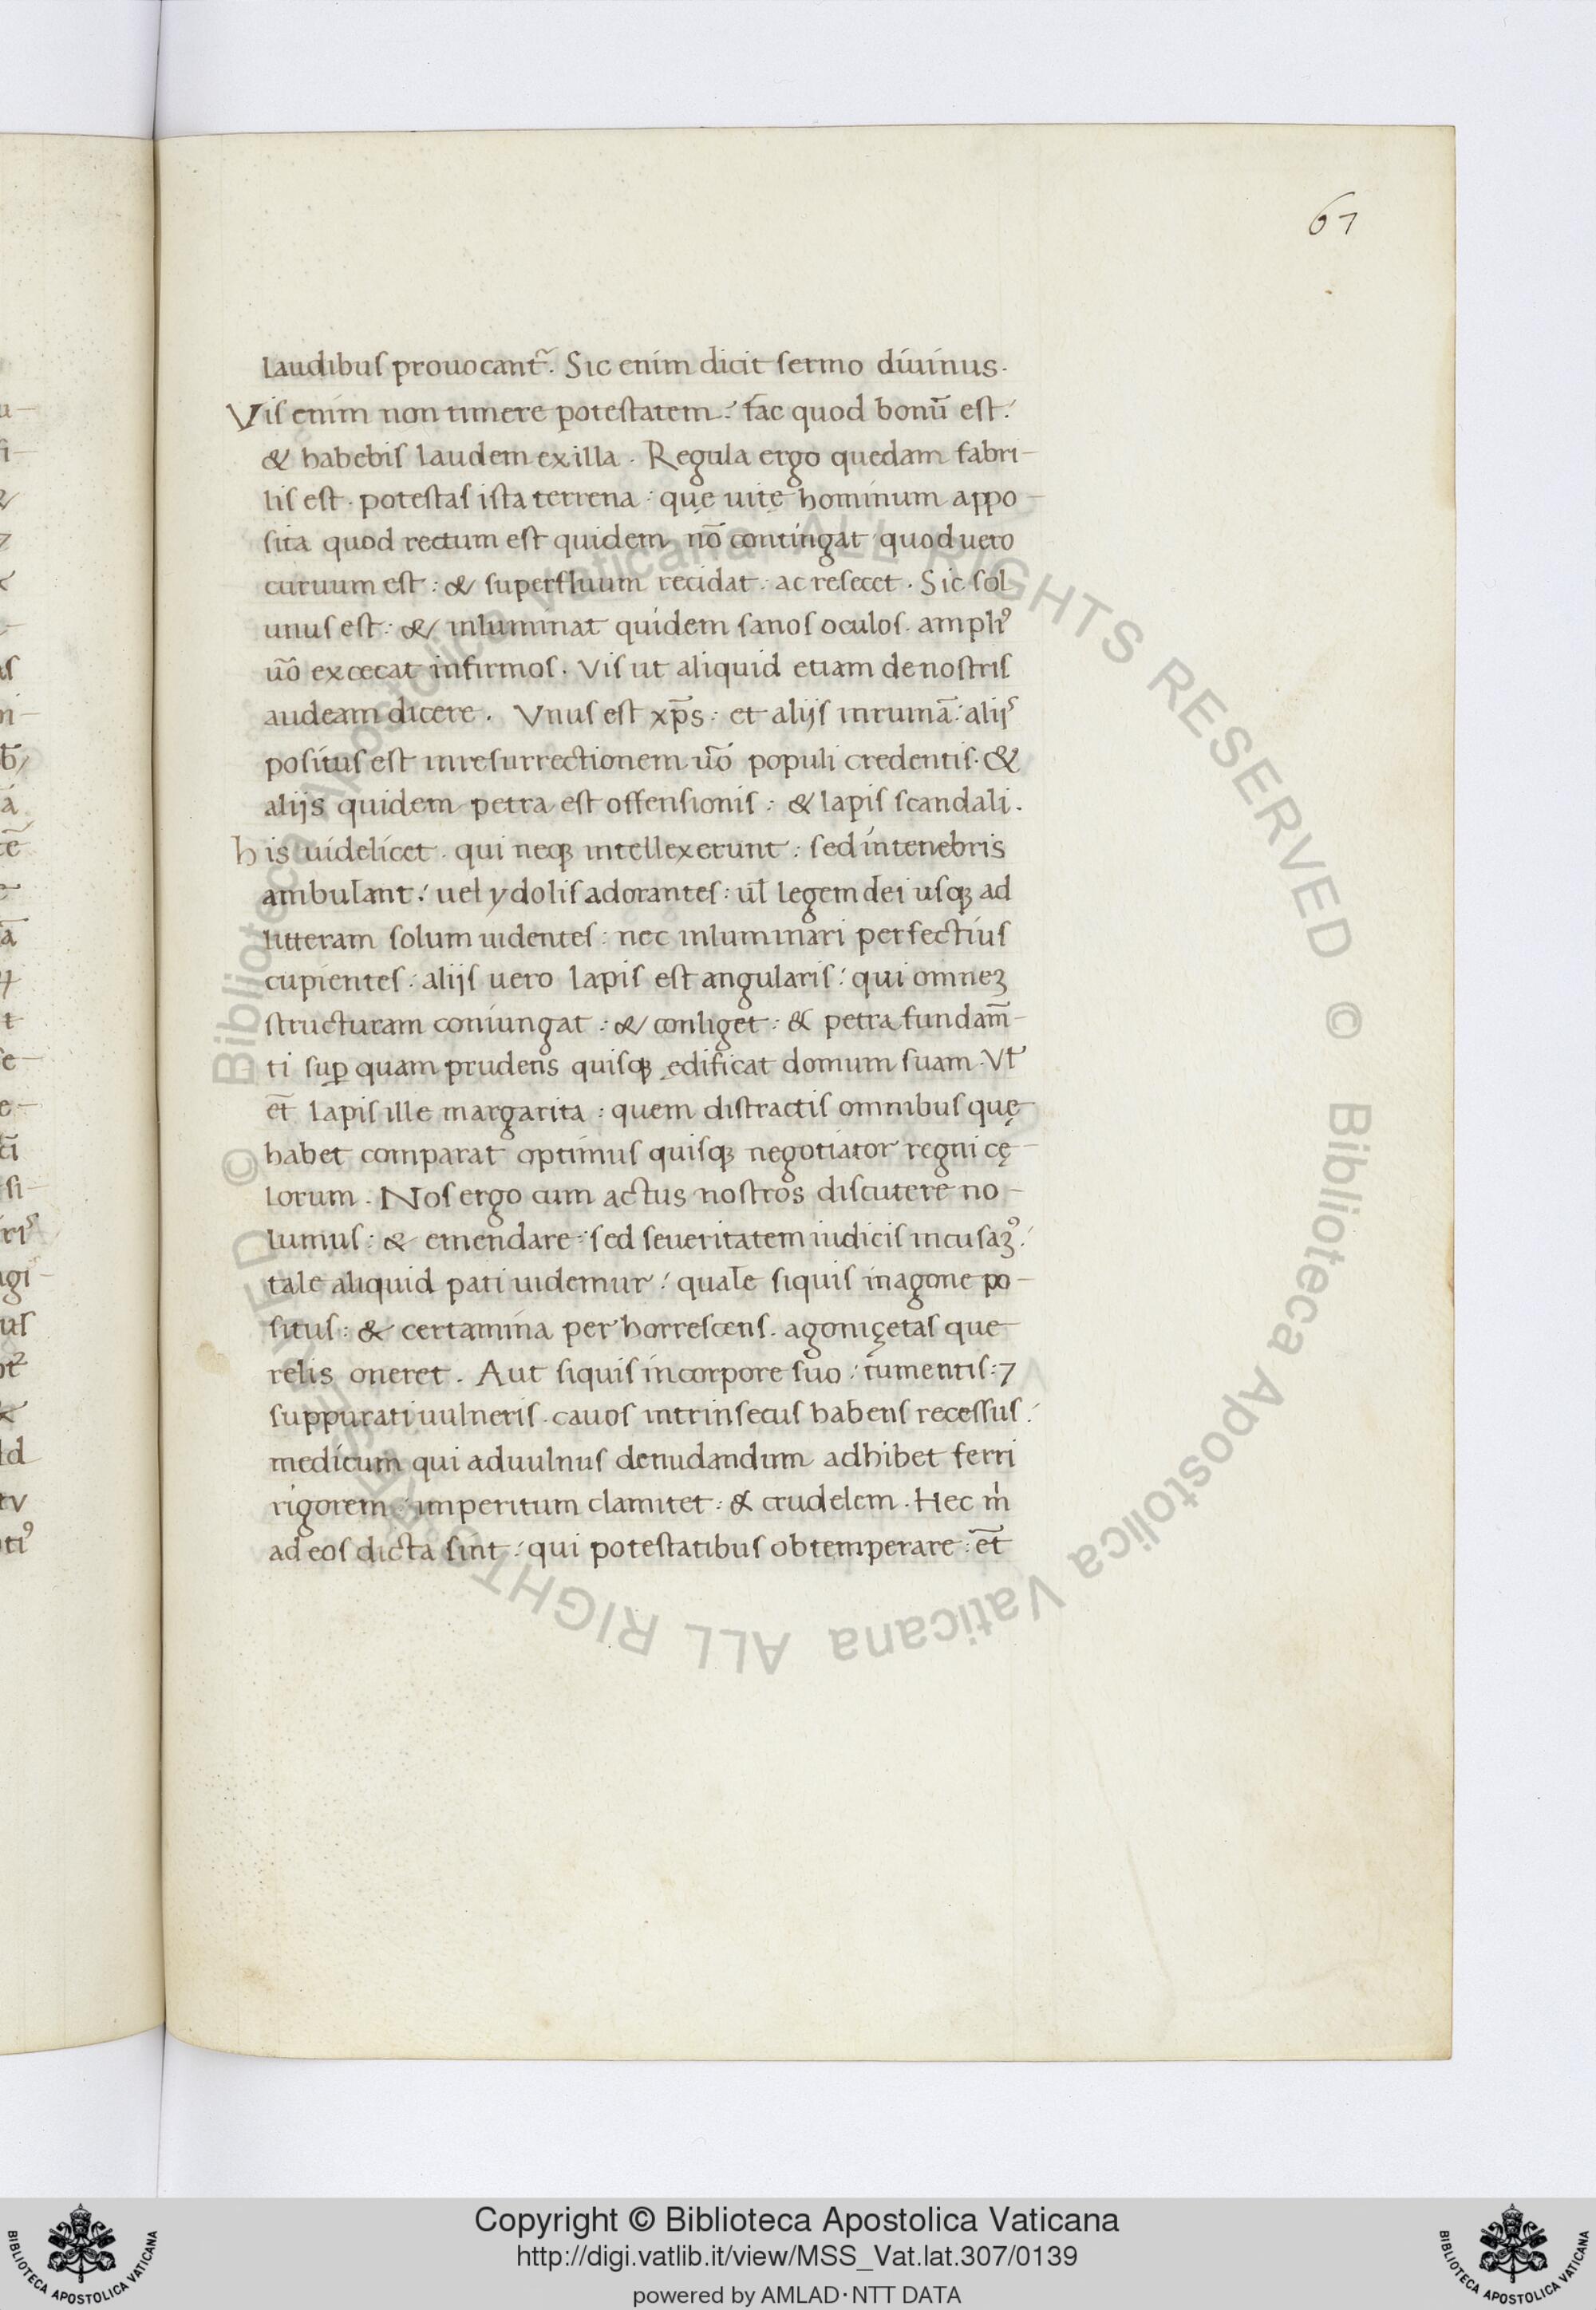 67
laudibus prouocant᷉. Sic enim dicit sermo diuinus.
Vis enim non timere potestatem: fac quod bonū est:
& habebis laudem ex illa. Regula ergo quedam fabri-
lis est. potestas ista terrena: quę uitę hominum appo-
sita quod rectum est quidem nō contingat quod uero
curuum est: & superfluum recidat. ac resecet. Sic sol
unus est: & inluminat quidem sanos oculos. ampliꝰ
ūo excecat infirmos. Vis ut aliquid etiam de nostris
audeam dicere. Vnus est xp̄s: et alijs in ruinā: alijs
positus est in resurrectionem ūo populi credentis. &
alijs quidem petra est offensionis: & lapis scandali.
his uidelicet. qui neqꝫ intellexerunt: sed in tenebris
ambulant: uel ydolis adorantes: ul̄ legem dei usqꝫ ad
litteram solum uidentes: nec inluminari perfectius
cupientes: alijs uero lapis est angularis: qui omneꝫ
structuram coniungat: & conliget: & petra fundam̄-
ti suꝑ quam prudens quisqꝫ ędificat domum suam. Vl̄
et̄ lapis ille margarita: quem distractis omnibus quę
habet comparat optimus quisqꝫ negotiator regni cę-
lorum. Nos ergo cum actus nostros discutere no-
lumus: & emendare: sed seueritatem iudicis incusaꝫꝰ:
tale aliquid pati uidemur: quale siquis in agone po-
situs: & certamina per horrescens. agoniçetas que-
relis oneret. Aut siquis in corpore suo: tumentis: ⁊
suppurati uulneris. cauos intrinsecus habens recessus:
medicum qui ad uulnus denudandum adhibet ferri
rigorem: imperitum clamitet: & crudelem. Hec m̍
ad eos dicta sint: qui potestatibus obtemperare: et̄
Copyright © Biblioteca Apostolica Vaticana
http://digi.vatlib.it/view/MSS_Vat.lat.307/0139
powered by AMLAD·NTT DATA